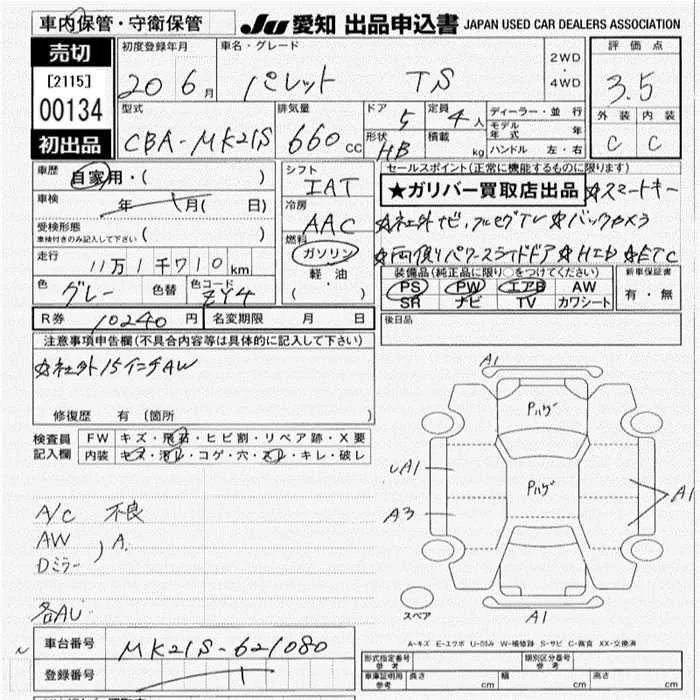 車内保管・守衛保管
JU 愛知 出品申込書 JAPAN USED CAR DEALERS ASSOCIATION
売切
[2115]
00134
初出品
初度登録年月 20 6月
車名・グレード パレット TS
2WD・4WD
評価点 3.5
外装 内装
C C
型式 CBA-MK21S
排気量 660 CC
ドア 5
形状 HB
定員 4人
積載 kg
ディーラー・並行
モデル年式 年
ハンドル 左・右
車歴 自家用・( )
車検 年 月( 日)
受検形態 ( )
車検付きのみ記入して下さい
走行 11万1千710km
色 グレー 色替 色コード ZY4
シフト IAT
冷房 AAC
燃料 ガソリン
軽・油
( ・ )
セールスポイント(正常に機能するものに限ります)
★ガリバー買取店出品 ☆スマートキー
☆社外ナビ,フルセグTV ☆バックカメラ
☆両側パワースライドドア ☆HID ☆ETC
装備品(純正品に限り○をつけてください)
PS PW エアB AW
SR ナビ TV カワシート
新車保証書
有・無
R券 10240円 名変期限 月 日
後日品
注意事項申告欄(不具合内容等は具体的に記入して下さい)
☆社外15インチAW
修復歴 有 (箇所 )
検査員記入欄
FW キズ・飛石・ヒビ割・リペア跡・X要
内装 キズ・汚レ・コゲ・穴・スレ・キレ・破レ
A/C 不良
AW
Dミラー ) A.
各AU
A1
Pハゲ
UA1
Pハゲ
A3
A1
スペア
A1
A-キズ E-エクボ U-凹み W-補修跡 S-サビ C-腐食 XX-交換済
車台番号 MK21S-621080
登録番号
型式指定番号 参考 類別区分番号 参考
車庫証明用 参考 長さ 幅 高さ